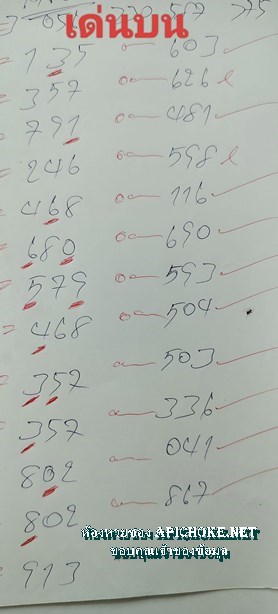 เด่นบน
135 603
357 626
791 481
246 598
468 116
680 690
579 593
468 504
357 503
357 336
802 041
802 867
913
ห้องหวยซอง APICHOKE.NET
ขอบคุณเจ้าของข้อมูล